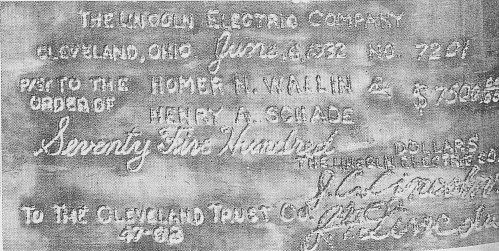 THE LINCOLN ELECTRIC COMPANY
CLEVELAND, OHIO June 6, 1932 NO. 7201
PAY TO THE ORDER OF HOMER N. WALLIN &
HENRY A. SCHADE $7500
Seventy Five Hundred DOLLARS
THE LINCOLN ELECTRIC CO.
J.C. Lincoln
TO THE CLEVELAND TRUST CO. Lincoln
47-83